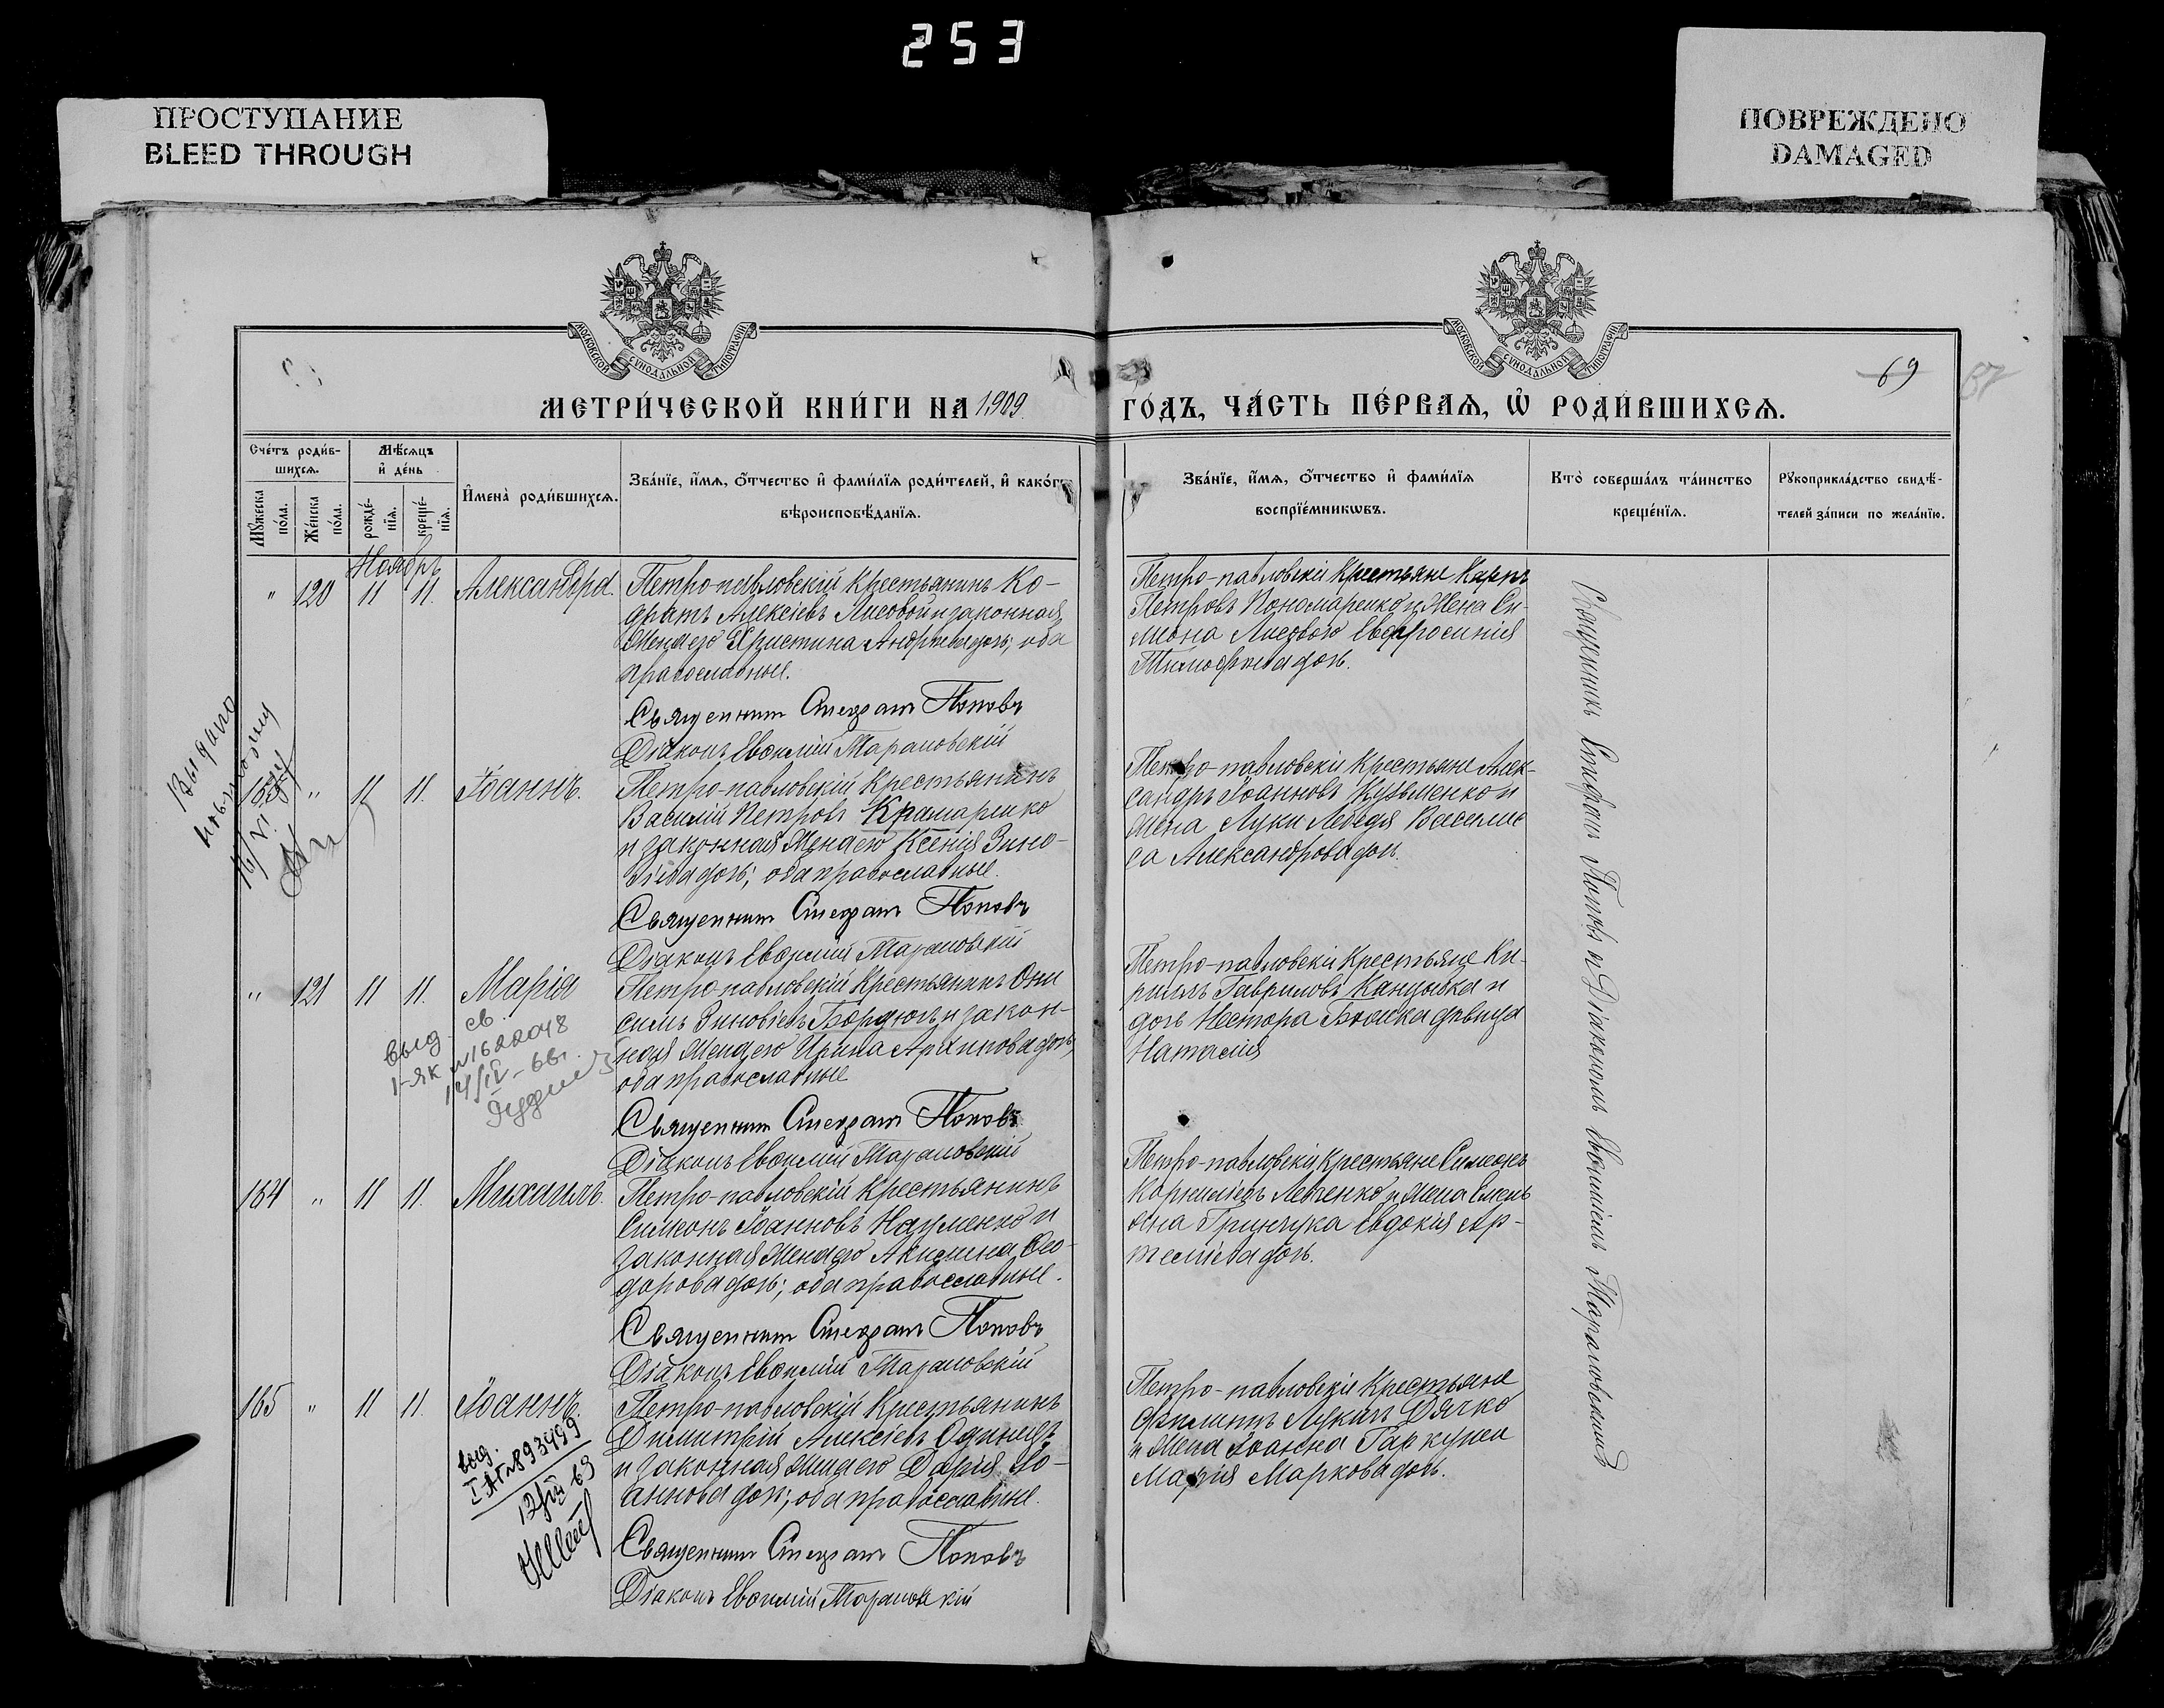 253
ПРОСТУПАНИЕ
BLEED THROUGH
ПОВРЕЖДЕНО
DAMAGED
МОСКОВСКОЙ СУНОДАЛЬНОЙ ТИПОГРАФІИ
МОСКОВСКОЙ СУНОДАЛЬНОЙ ТИПОГРАФІИ
69
МЕТРИ́ЧЕСКОЙ КНИ́ГИ НА 1909
ГО́ДЪ, ЧА́СТЬ ПЕ́РВАѦ, Ѡ҆ РОДИ́ВШИХСѦ.
Сче́тъ роди́в-
шихсѧ.
Мꙋ́жеска по́ла.
Же́нска по́ла.
Мѣ́сѧцъ
и҆ де́нь
рожде́-
нїѧ.
креще́-
нїѧ.
И҆мена̀ роди́вшихсѧ.
Зва́нїе, и҆́мѧ, ѻ҆́тчество и҆ фами́лїѧ роди́телей, и҆ како́гѡ
вѣроисповѣ́данїѧ.
Зва́нїе, и҆́мѧ, ѻ҆́тчество и҆ фами́лїѧ
воспрїе́мникѡвъ.
Кто̀ соверша́лъ та́инство
креще́нїѧ.
Рꙋкоприкла́дство свидѣ́-
телей за́писи по жела́нїю.
Ноябрь
" 120 11 11. Александра.
Петро-павловскій крестьянинъ Ко-
дратъ Алексіевъ Лисовой и законная
жена его Христина Андреева дочь, оба
православные.
Священникъ Стефанъ Поповъ
Діаконъ Евѳимій Тарановскій
Петро-павловскіе крестьяне Карпъ
Петровъ Пономаренко и жена Си-
меона Лисового Евфросинія
Тимофеева дочь.
163 " 11 11. Іоаннъ.
Выдано
Петро-павловскій крестьянинъ
Василій Петровъ Крамаренко
и законная жена его Ксенія Зино-
віева дочь; оба православные.
Священникъ Стефанъ Поповъ
Діаконъ Евѳимій Тарановскій
Петро-павловскіе крестьяне Алек-
сандръ Іоанновъ Кузьменко и
жена Луки Лебедя Василис
са Александрова дочь.
" 121 11 11. Марія
выд св.
I-ЯК №1622048
14/IV-66г.
Петро-павловскій крестьянинъ Они
симъ Зиновіевъ Бордюгъ и закон-
ная жена его Ирина Архипова дочь,
оба православные
Священникъ Стефанъ Поповъ
Діаконъ Евѳимій Тарановскій
Петро-павловскіе крестьяне Ки-
риллъ Гавриловъ Канцыбка и
дочь Нестора девица
Наталія
164 " 11 11. Михаилъ.
Петро-павловскій крестьянинъ
Симеонъ Іоанновъ Науменко и
законная жена его Акилина Ѳео-
дорова дочь; оба православные.
Священникъ Стефанъ Поповъ
Діаконъ Евѳимій Тарановскій
Петро-павловскіе крестьяне Симеонъ
Корниліевъ Левченко и жена Емель
яна Гринчука Евдокія Ар-
теміева дочь.
165 " 11 11. Іоаннъ.
выд.
I АП №893499
Петро-павловскій крестьянинъ
Димитрій Алексіевъ Одинецъ
и законная жена его Дарія Іо-
аннова дочь; оба православные.
Священникъ Стефанъ Поповъ
Діаконъ Евѳимій Тарановскій
Петро-павловскіе крестьяне
Филиппъ Лукичъ Дячко
и жена Іоанна Гаркуши
Марія Маркова дочь.
Священникъ Стефанъ Поповъ и Діакономъ Евѳиміемъ Тарановскимъ